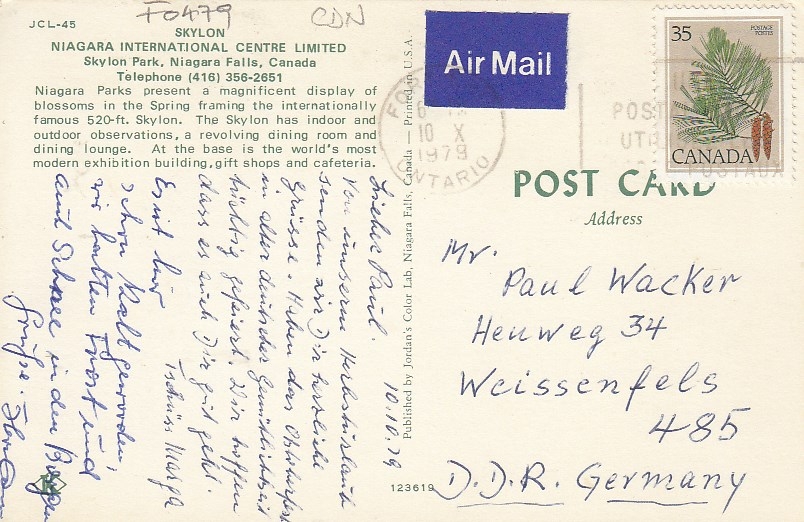 F0479
CDN
JCL-45
SKYLON
NIAGARA INTERNATIONAL CENTRE LIMITED
Skylon Park, Niagara Falls, Canada
Telephone (416) 356-2651
Niagara Parks present a magnificent display of
blossoms in the Spring framing the internationally
famous 520-ft. Skylon. The Skylon has indoor and
outdoor observations, a revolving dining room and
dining lounge. At the base is the world's most
modern exhibition building, gift shops and cafeteria.
10.10.79
Lieber Paul.
Von unserm Herbsturlaub
senden wir Dir herzliche
Grüsse. Haben das Oktoberfest
in alter deutscher Gemütlichkeit
tüchtig gefeiert. Wir hoffen
dass es auch Dir gut geht.
Tschüss Marga
Es ist hier
schon kalt geworden,
wir hatten Frost und
auch Schnee in den Bergen
Grüße.
Published by Jordan's Color Lab, Niagara Falls, Canada — Printed in U.S.A.
123619
Air Mail
10 X
1979
ONTARIO
POST
UTIL
POSTAUX
35
POSTAGE
POSTES
CANADA
POST CARD
Address
Mr.
Paul Wacker
Heuweg 34
Weissenfels
485
D.D.R. Germany